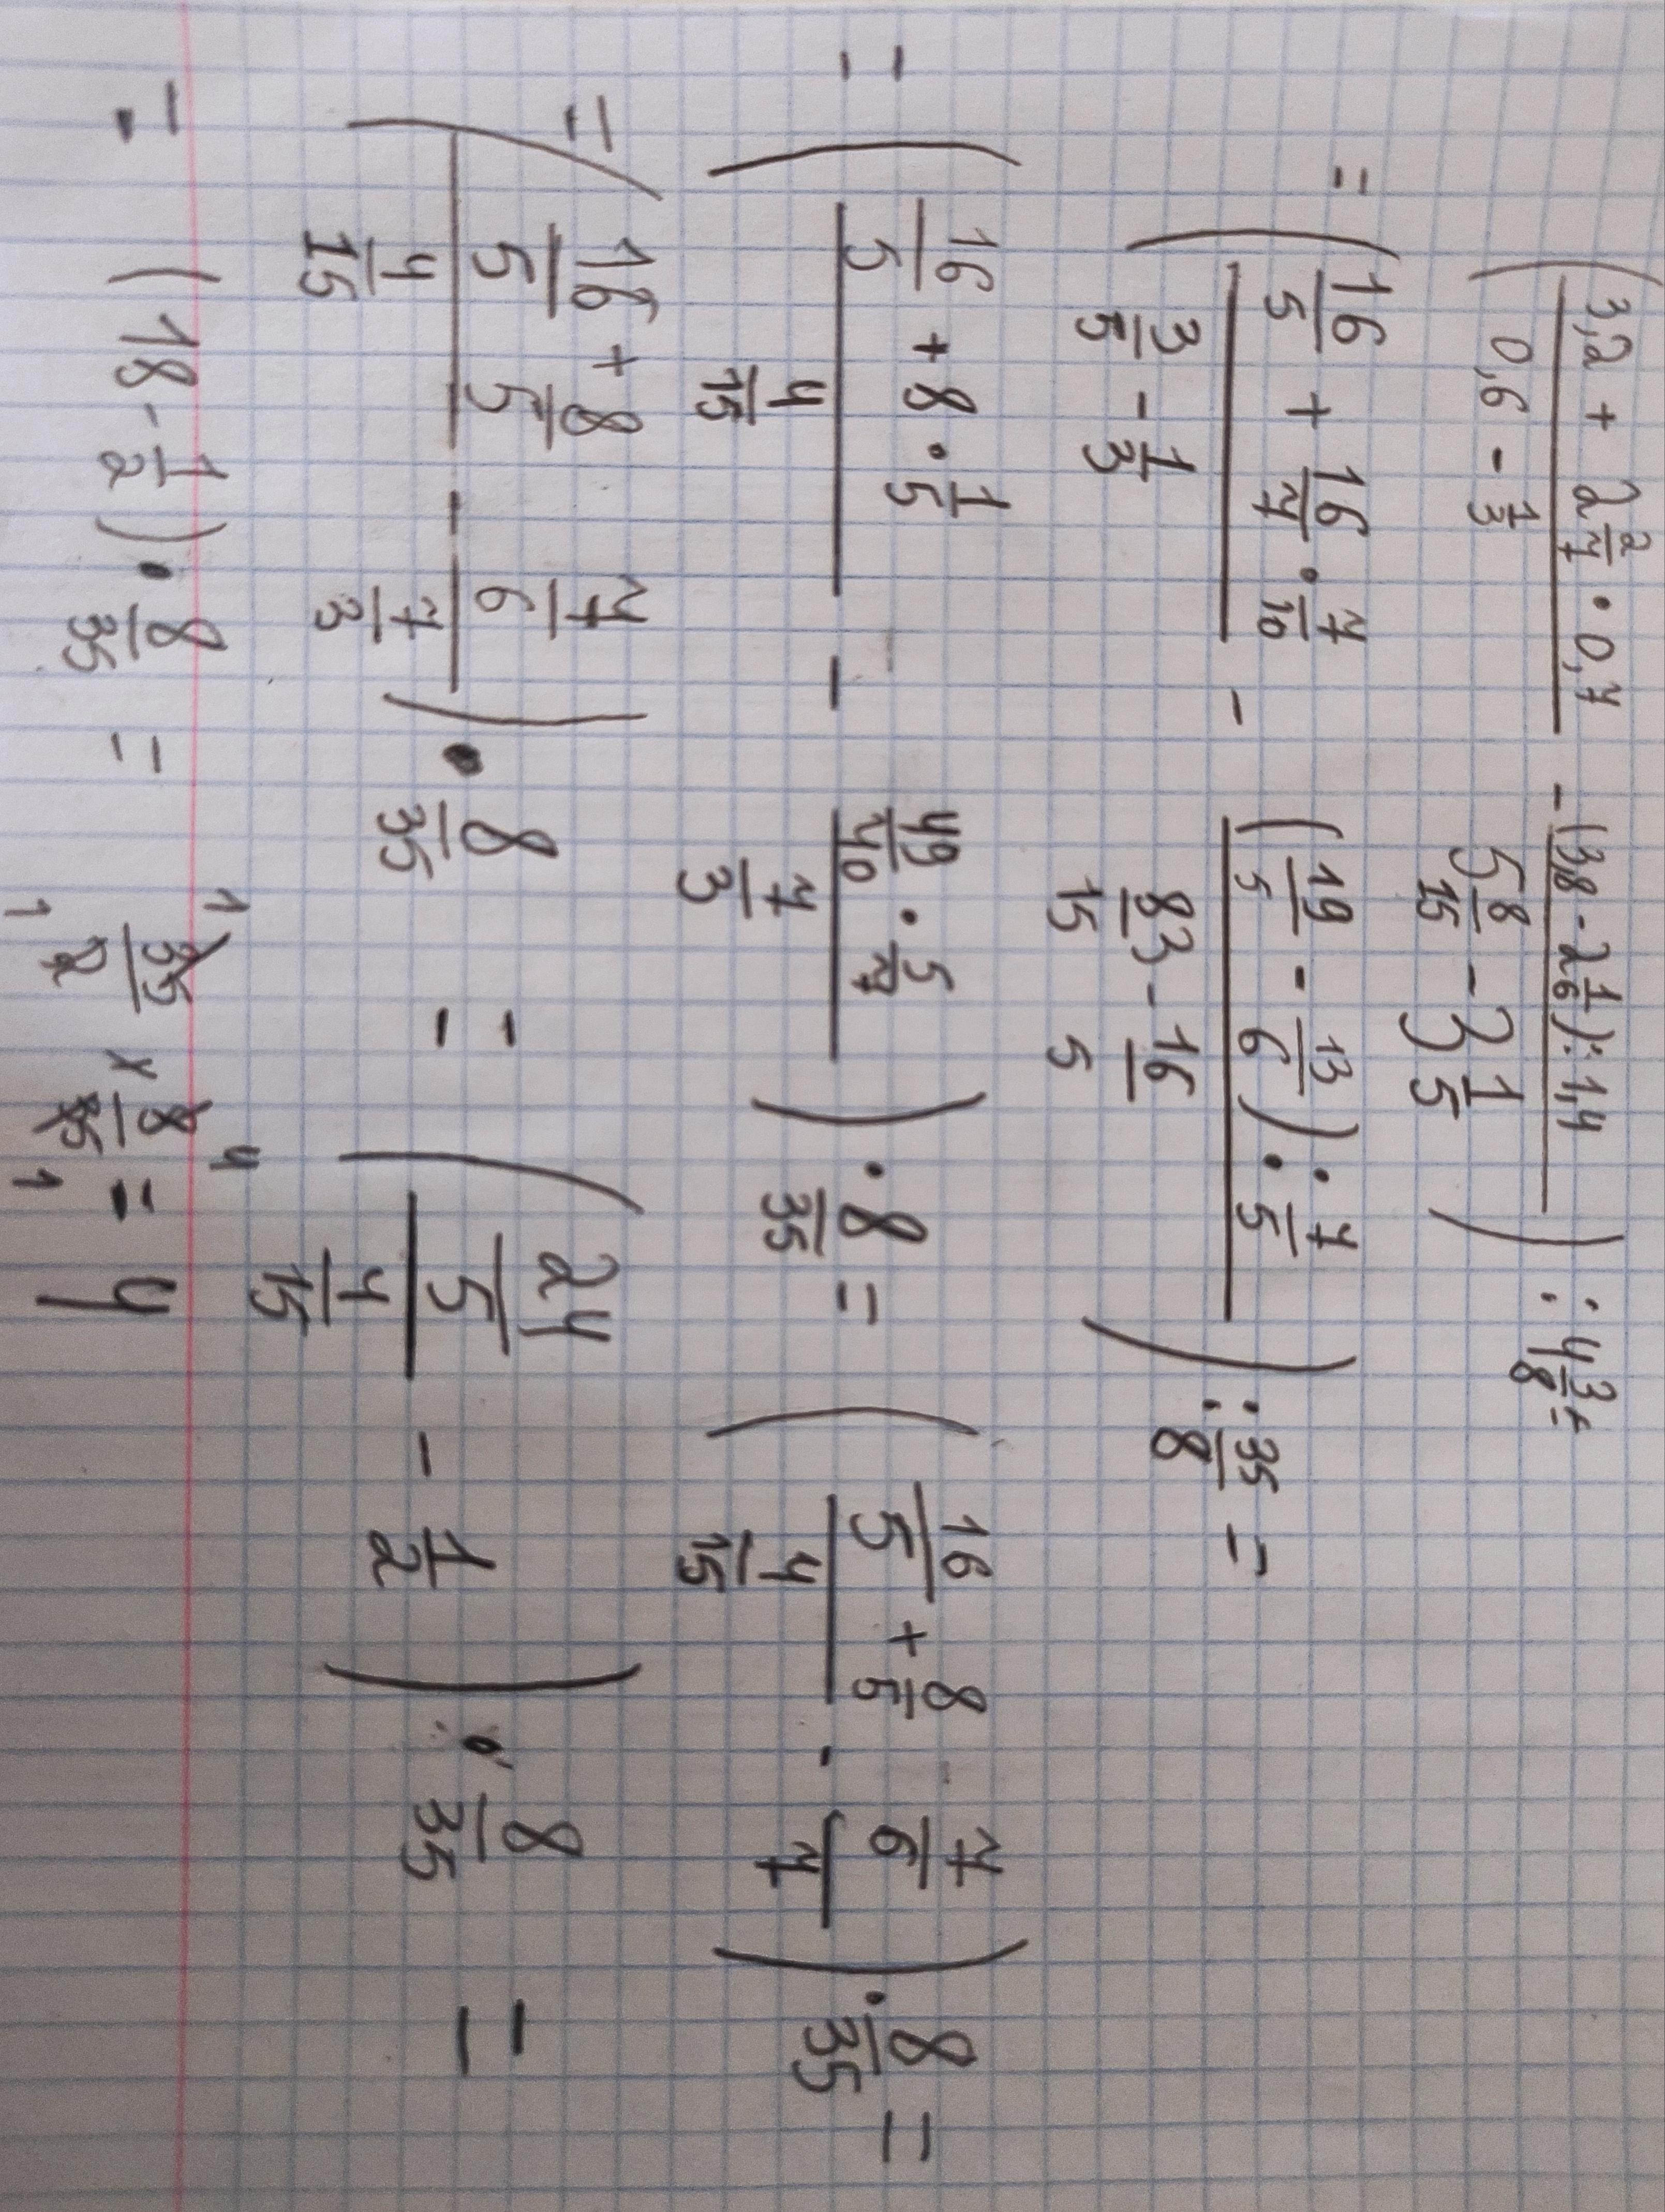 (3,2 + 2 2/7 · 0,7 / 0,6 - 1/3 - (3,8 - 2 1/6) : 1,4 / 5 8/15 - 3 1/5) : 4 3/8 =
= (16/5 + 16/7 · 7/10 / 3/5 - 1/3 - (19/5 - 13/6) : 7/5 / 83/15 - 16/5) : 35/8 =
= (16/5 + 8 · 1/5 / 4/15 - 49/40 · 5/7 / 7/3) · 8/35 = (16/5 + 8/5 / 4/15 - 7/6 / 7) · 8/35 =
= (16/5 + 8/5 / 4/15 - 7/6 / 7/3) · 8/35 = (24/5 / 4/15 - 1/2) · 8/35 =
= (18 - 1/2) · 8/35 = 35/2 × 8/35 = 4